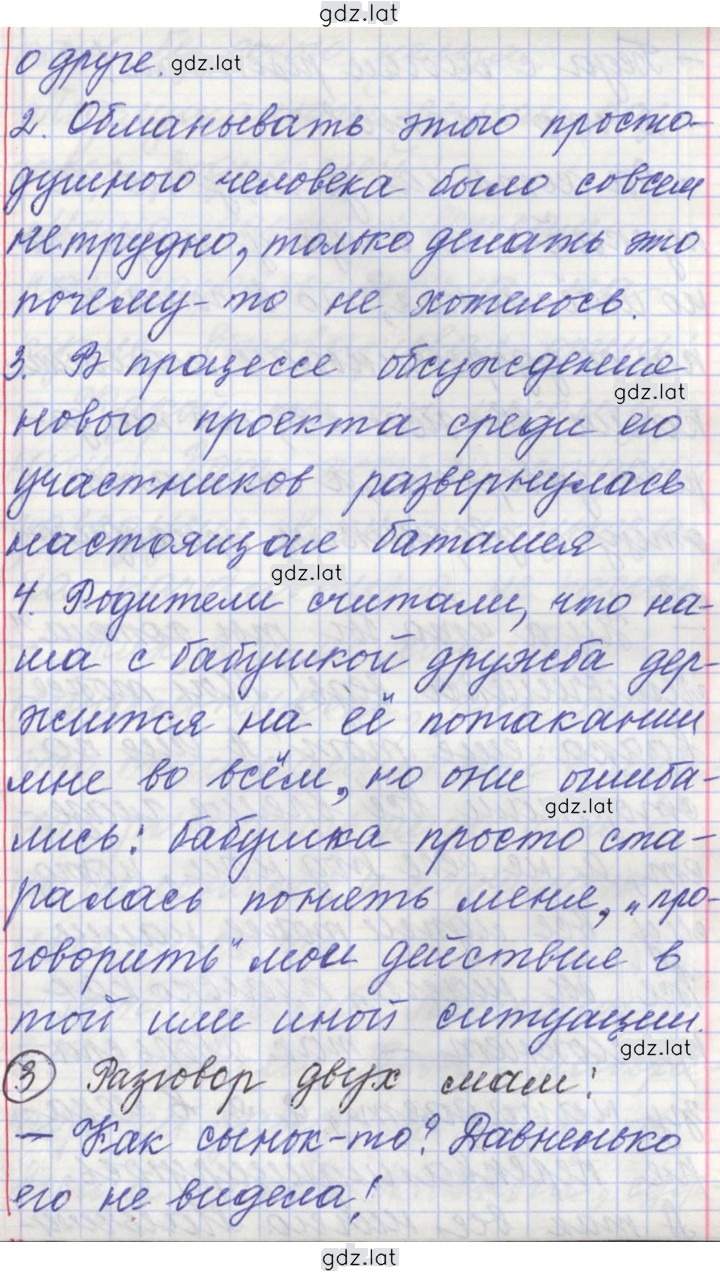 gdz.lat
о друге. gdz.lat
2. Обманывать этого просто-
душного человека было совсем
нетрудно, только делать это
почему-то не хотелось.
3. В процессе обсуждения
gdz.lat
нового проекта среди его
участников развернулась
настоящая баталия
gdz.lat
4. Родители считали, что на-
ша с бабушкой дружба дер-
жится на её потакании
мне во всём, но они ошиба-
gdz.lat
лись: бабушка просто ста-
ралась понять меня, "про-
говорить" мои действия в
той или иной ситуации.
gdz.lat
3 Разговор двух мам:
– Как сынок-то? Давненько
его не видела!
gdz.lat